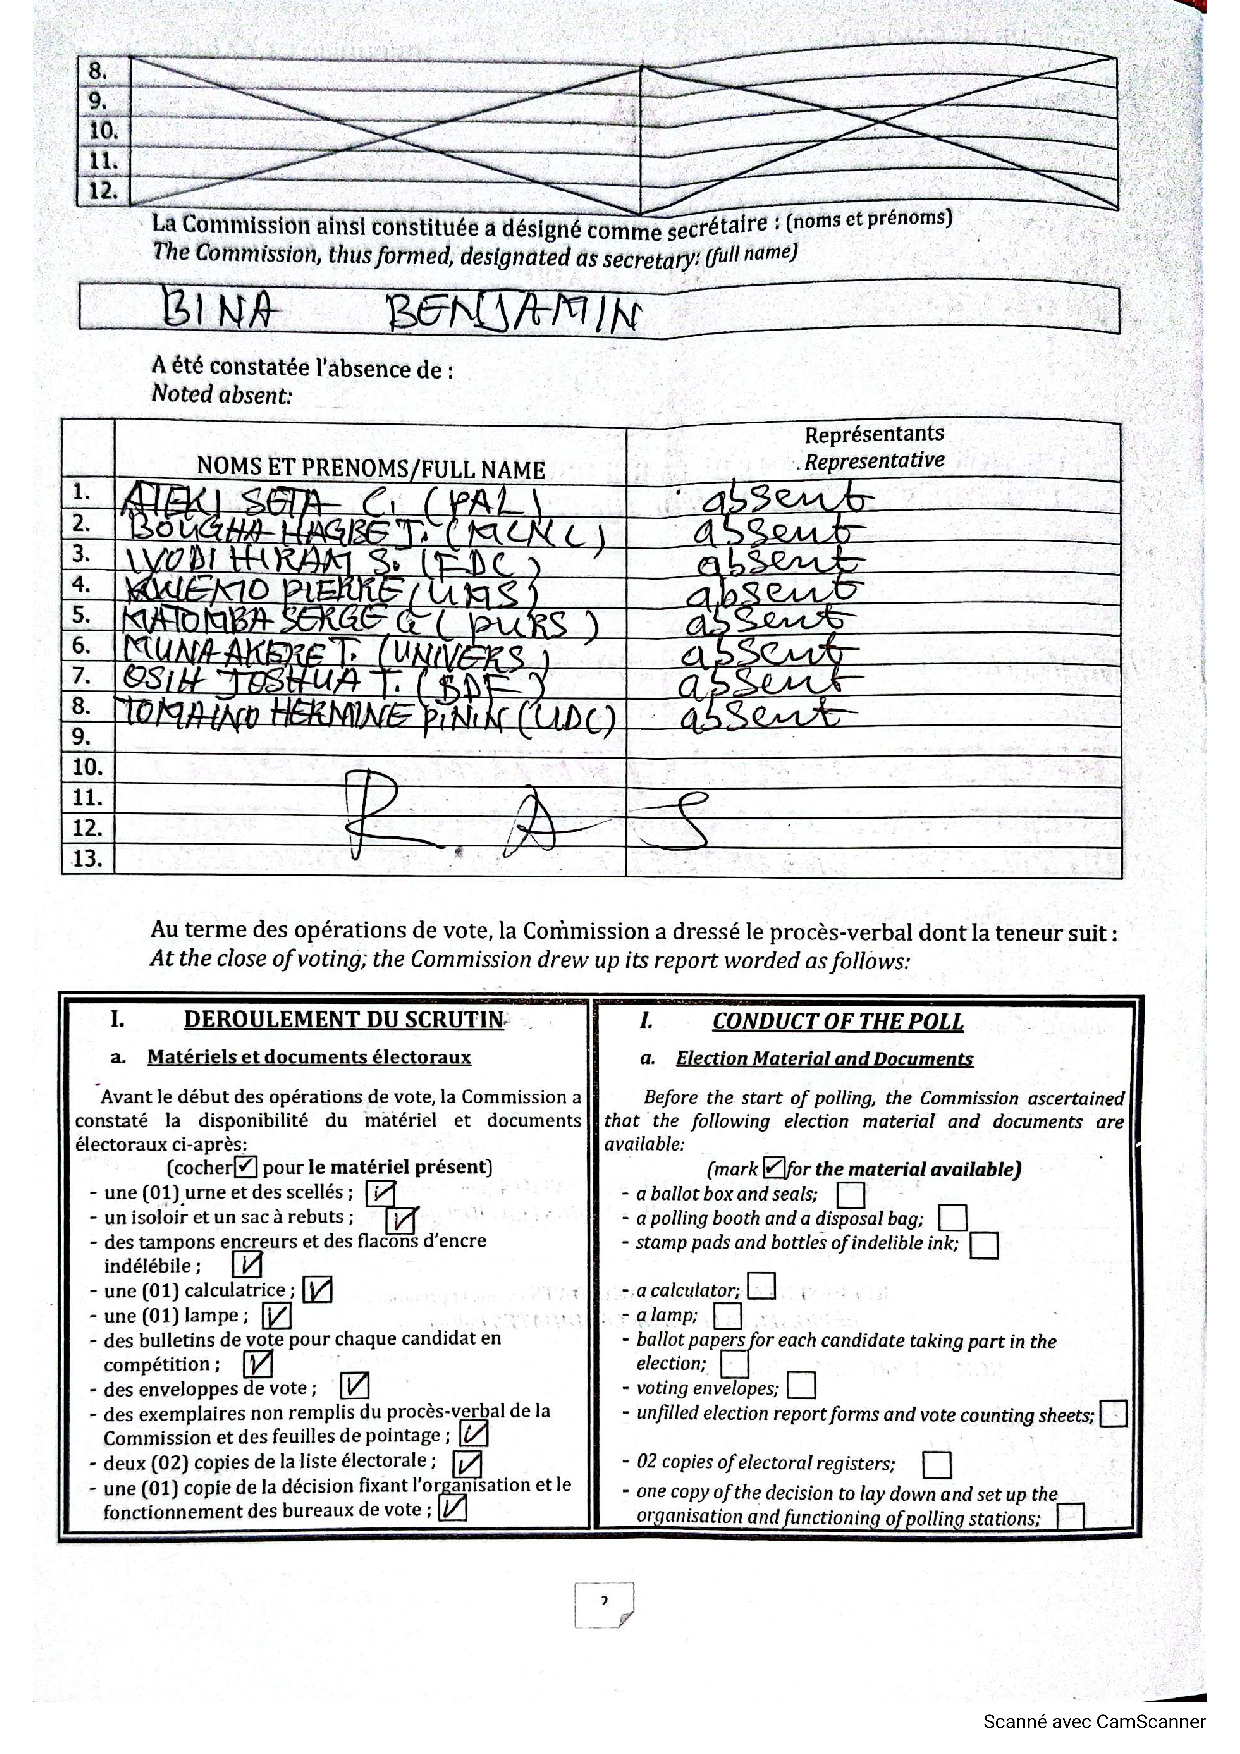 8.
9.
10.
11.
12.
La Commission ainsi constituée a désigné comme secrétaire : (noms et prénoms)
The Commission, thus formed, designated as secretary: (full name)
BINA BENJAMIN
A été constatée l'absence de :
Noted absent:
NOMS ET PRENOMS/FULL NAME
Représentants
Representative
1. ATEKI SETA C. (PAL) absent
2. BOUGHA HAGBE T. (MCNC) absent
3. IYODI HIRAM S. (FDC) absent
4. KWEMO PIERRE (UMS) absent
5. MATOMBA SERGE G (PURS) absent
6. MUNA AKERE T. (UNIVERS) absent
7. OSIH JOSHUA T. (SDF) absent
8. TOMAINO HERMINE PININ (UDC) absent
9.
10.
11. R. A S
12.
13.
Au terme des opérations de vote, la Commission a dressé le procès-verbal dont la teneur suit :
At the close of voting; the Commission drew up its report worded as follows:
I. DEROULEMENT DU SCRUTIN
a. Matériels et documents électoraux
Avant le début des opérations de vote, la Commission a
constaté la disponibilité du matériel et documents
électoraux ci-après:
(cocher ☑ pour le matériel présent)
- une (01) urne et des scellés ; ☑
- un isoloir et un sac à rebuts ; ☑
- des tampons encreurs et des flacons d'encre
indélébile ; ☑
- une (01) calculatrice ; ☑
- une (01) lampe ; ☑
- des bulletins de vote pour chaque candidat en
compétition ; ☑
- des enveloppes de vote ; ☑
- des exemplaires non remplis du procès-verbal de la
Commission et des feuilles de pointage ; ☑
- deux (02) copies de la liste électorale ; ☑
- une (01) copie de la décision fixant l'organisation et le
fonctionnement des bureaux de vote ; ☑
I. CONDUCT OF THE POLL
a. Election Material and Documents
Before the start of polling, the Commission ascertained
that the following election material and documents are
available:
(mark ☑ for the material available)
- a ballot box and seals; ☐
- a polling booth and a disposal bag; ☐
- stamp pads and bottles of indelible ink; ☐
- a calculator; ☐
- a lamp; ☐
- ballot papers for each candidate taking part in the
election; ☐
- voting envelopes; ☐
- unfilled election report forms and vote counting sheets; ☐
- 02 copies of electoral registers; ☐
- one copy of the decision to lay down and set up the
organisation and functioning of polling stations; ☐
2
Scanné avec CamScanner